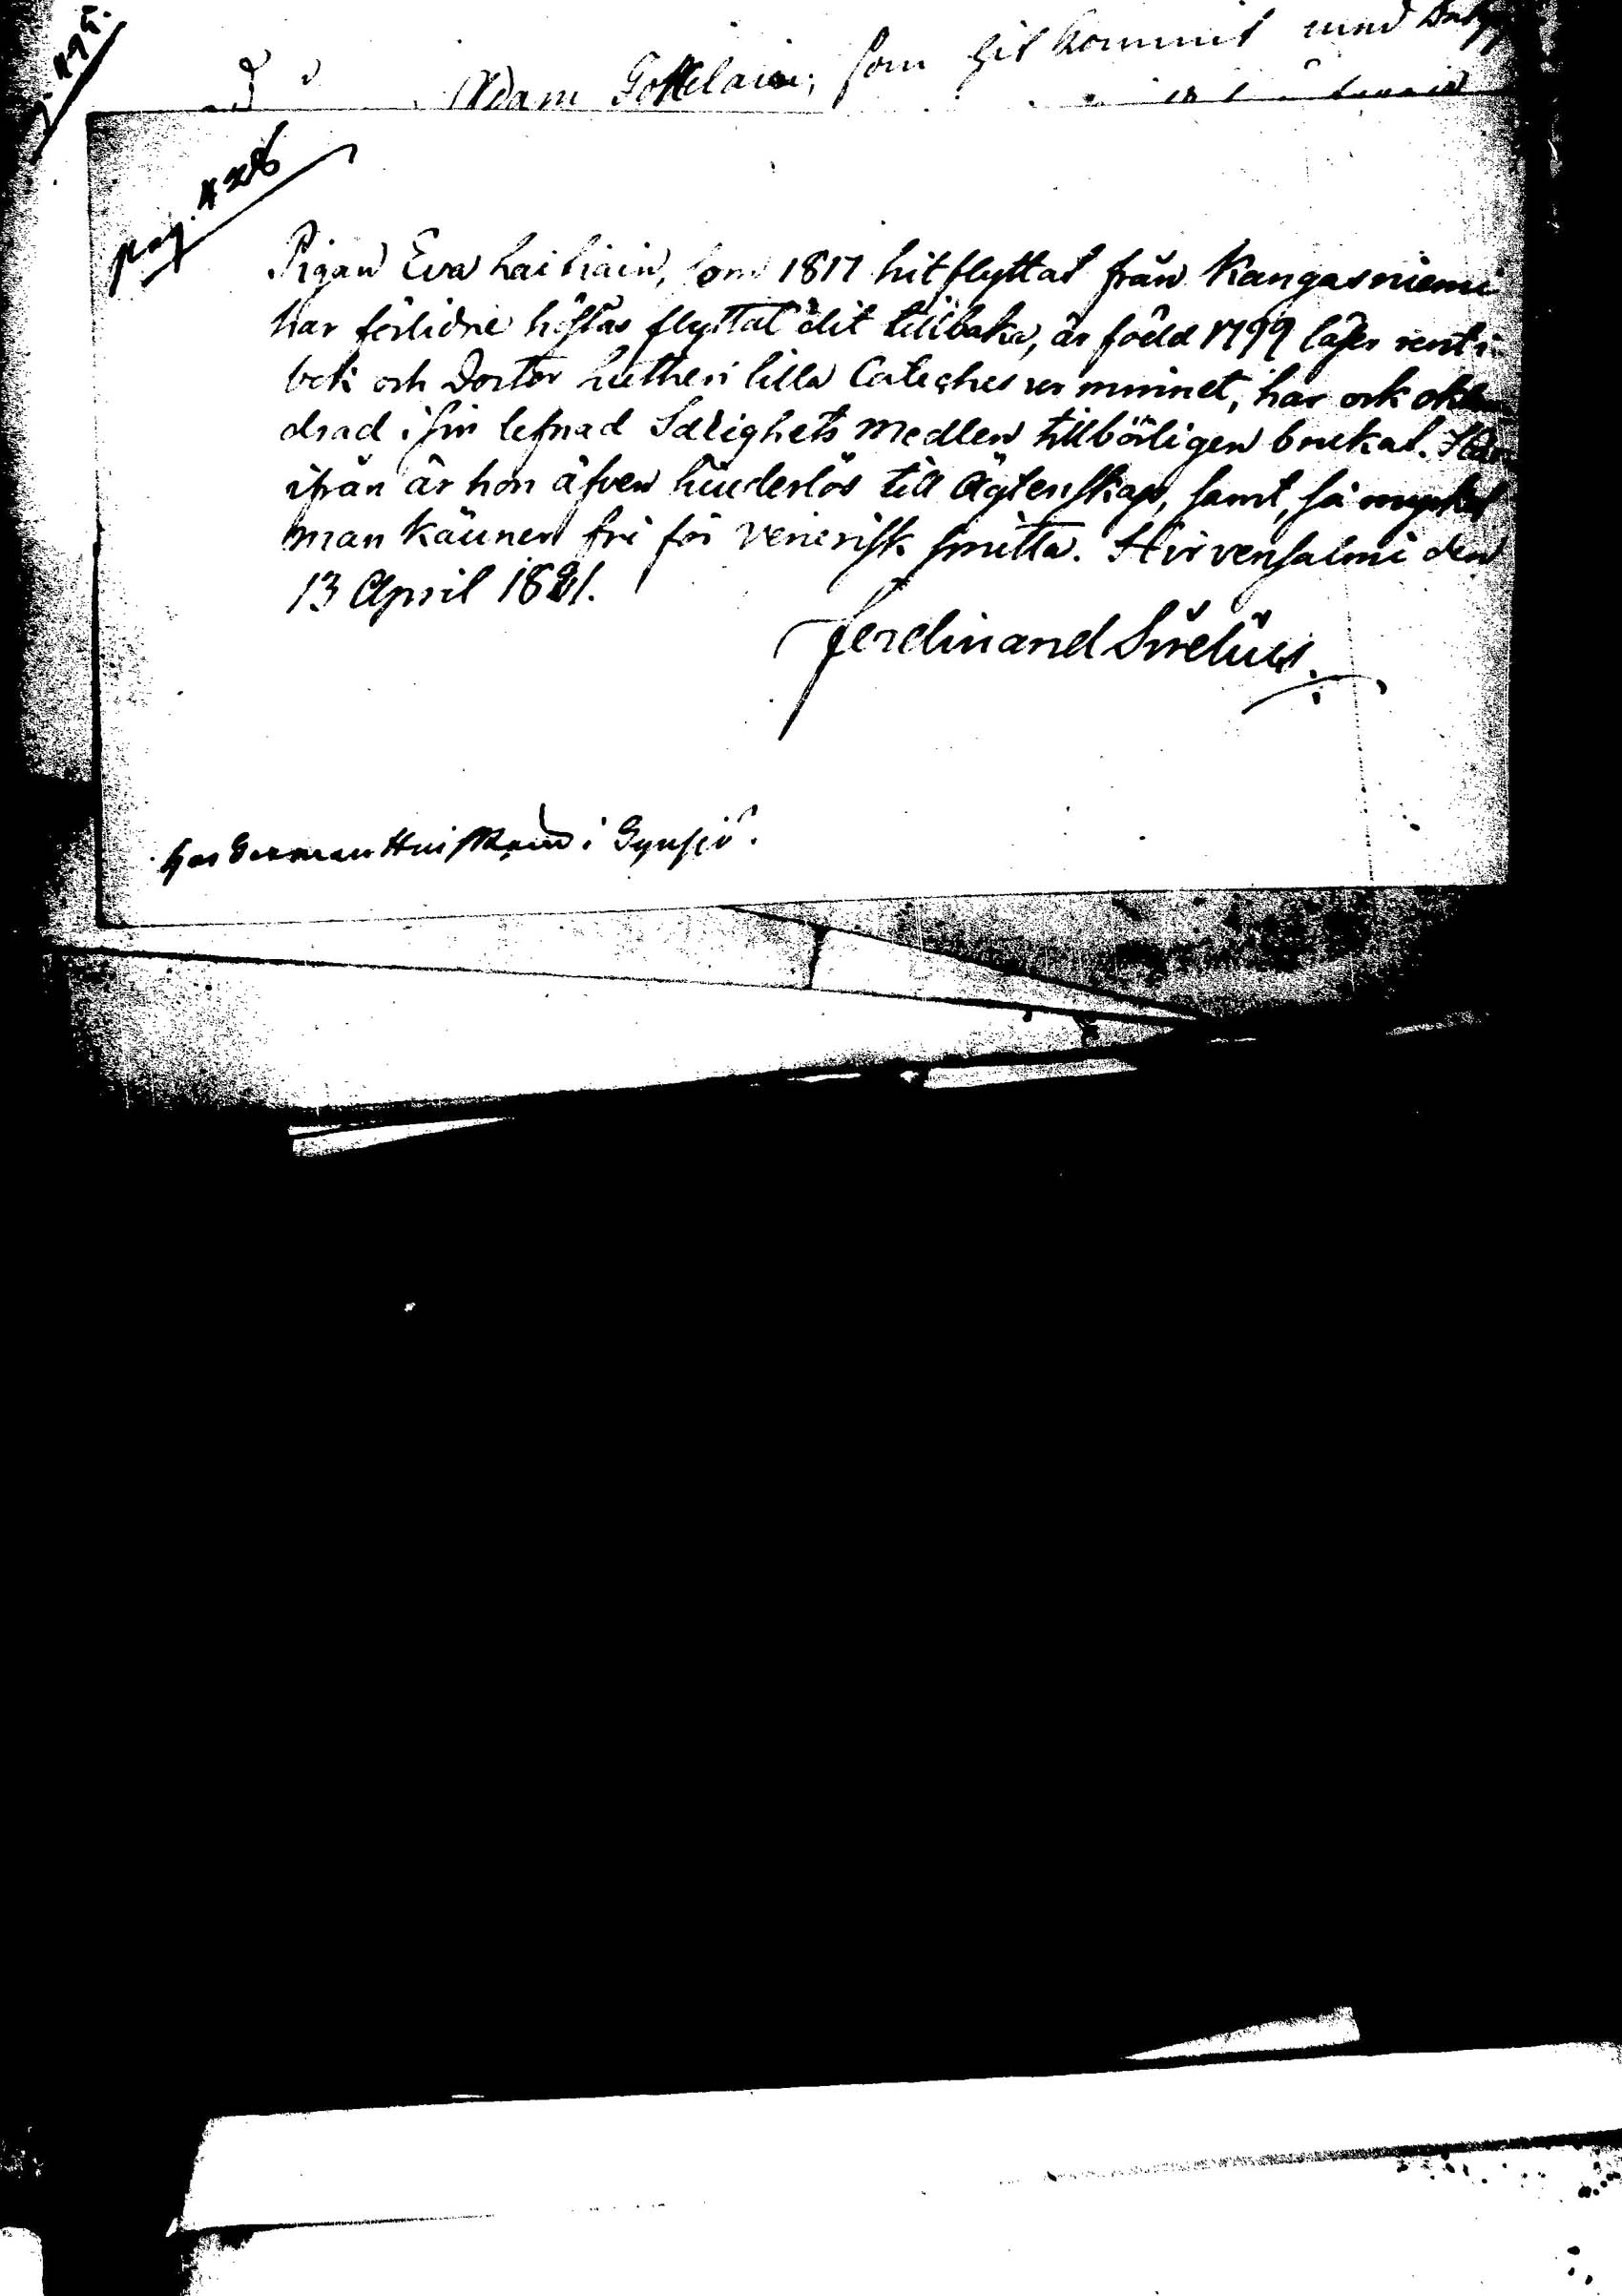 Adam Gottelain, som hit kommit med
pag. 428
Pigan Eva Laitiain, som 1817 hitflyttat från Kangasniemi
har förlidne höstas flyttat dit tillbaka, är född 1799 läser rent i
bok och Doctor Lutheri lilla Cateches ur minnet, har ock oklan-
drad i sin lefnad Salighets Medlen tillbörligen brukat. Här-
ifrån är hon äfven hinderlös till Ägtenskap, samt, så mycket
man känner fri för Venerisk smitta. Hirvensalmi den
13 April 1821.
Ferdinand Sirelius.
hos German Huiskoin i Synsiö.